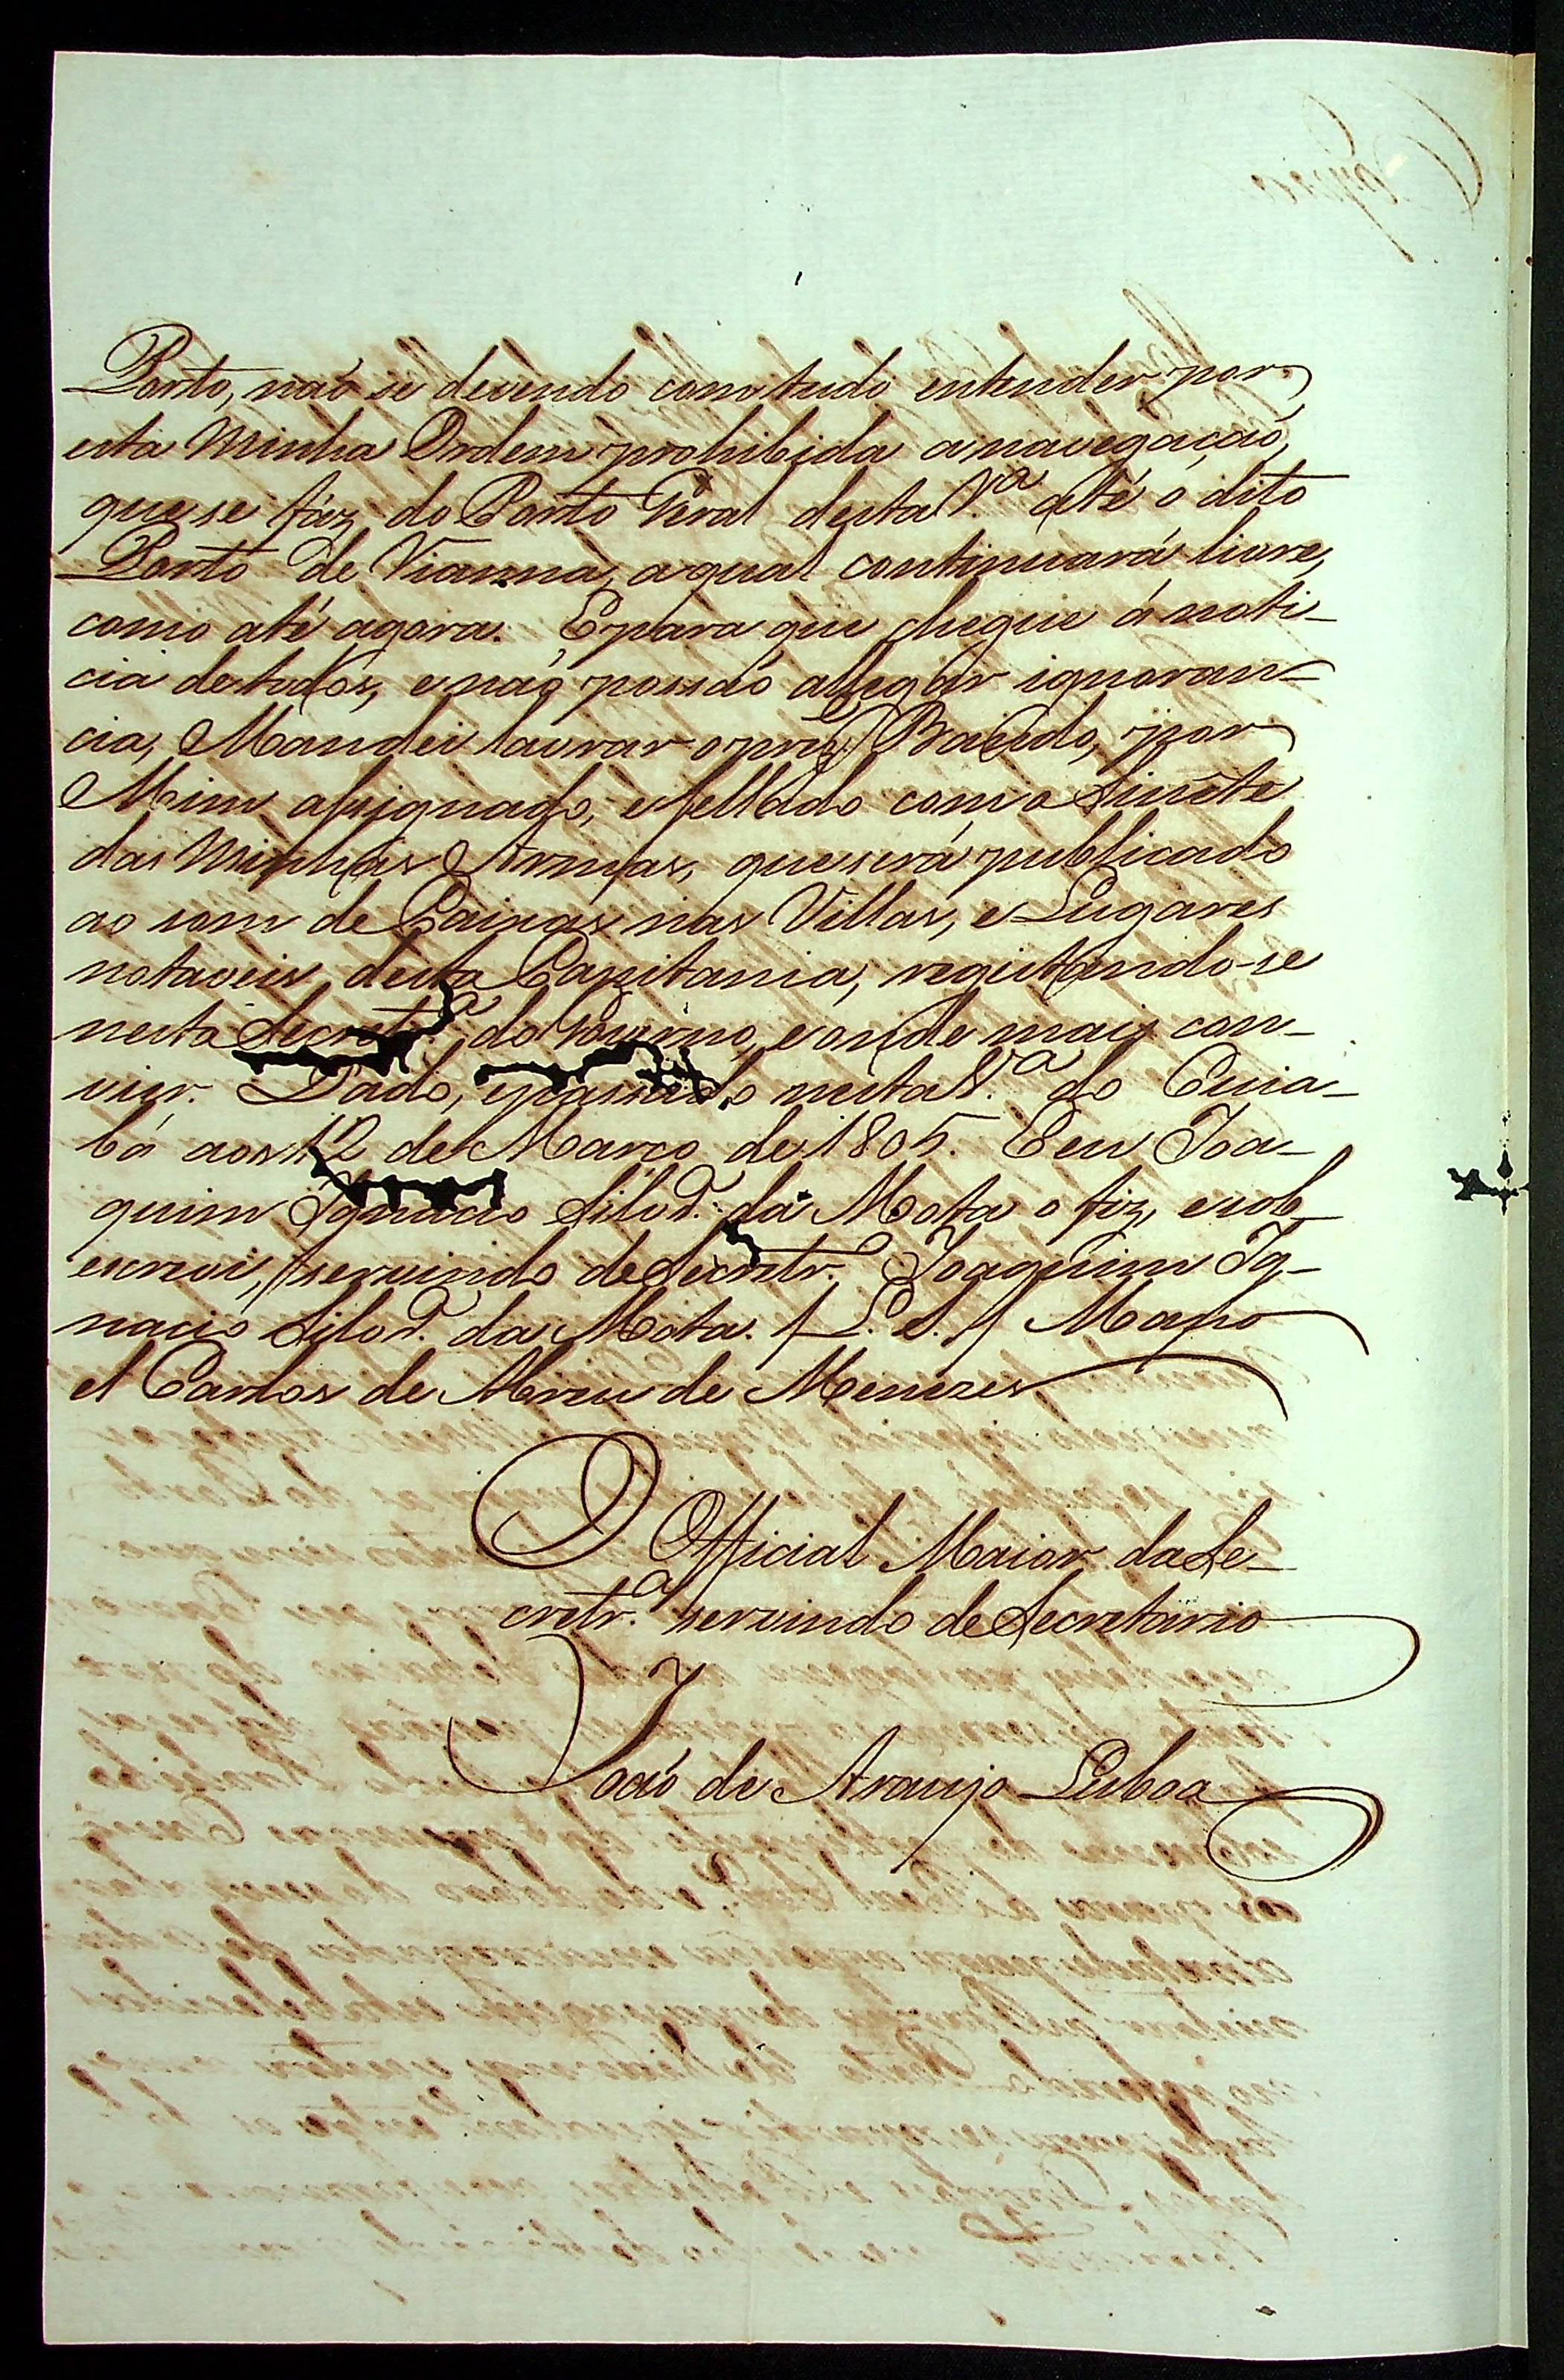 Porto, naõ se devendo com tudo entender por
esta Minha Ordem prohibida a navegaçaõ,
que se fáz do Porto Geral desta V.ª até o dito
Porto de Vianna, a qual continuará livre,
como até agora. E para que chegue á noti-
cia de todos, e naõ possaõ allegar ignoran-
cia, Mandei lavrar o prez.e Bando, por
Mim assignado, e sellado com o Sinête
das Minhas Armas, que será publicado
ao som de Caixas nas Villas, e Lugares
notaveis desta Capitania, registando-se
nesta Secret.ª do Governo, e onde mais con-
vier. Dado, e passado nesta V.ª do Cuia-
bá aos 12 de Março de 1805. E eu Joa-
quim Ignacio da Mota o fiz, e sob
escrevi, servindo de Secretr.o Joaquim Ig-
nacio da Mota. / L. S. / Mano
el Carlos de Abreu de Menezes
O Official Maior da Se-
cretr.ª servindo de Secretario
Joaõ de Araujo Lisboa